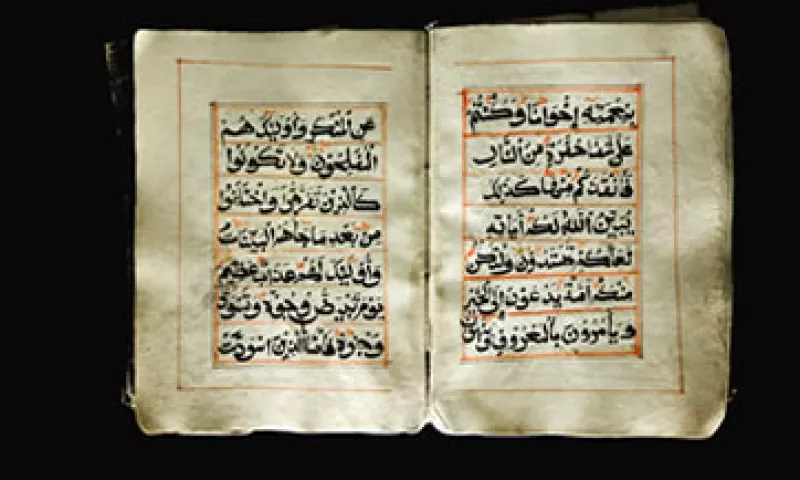 بنعمته إخوانا وكنتم
على شفا حفرة من النار
فأنقذكم منها كذلك
يبين الله لكم آياته
لعلكم تهتدون ولتكن
منكم أمة يدعون إلى الخير
ويأمرون بالمعروف وينهون
عن المنكر وأولئك هم
المفلحون ولا تكونوا
كالذين تفرقوا واختلفوا
من بعد ما جاءهم البينات
وأولئك لهم عذاب عظيم
يوم تبيض وجوه وتسود
وجوه فأما الذين اسودت